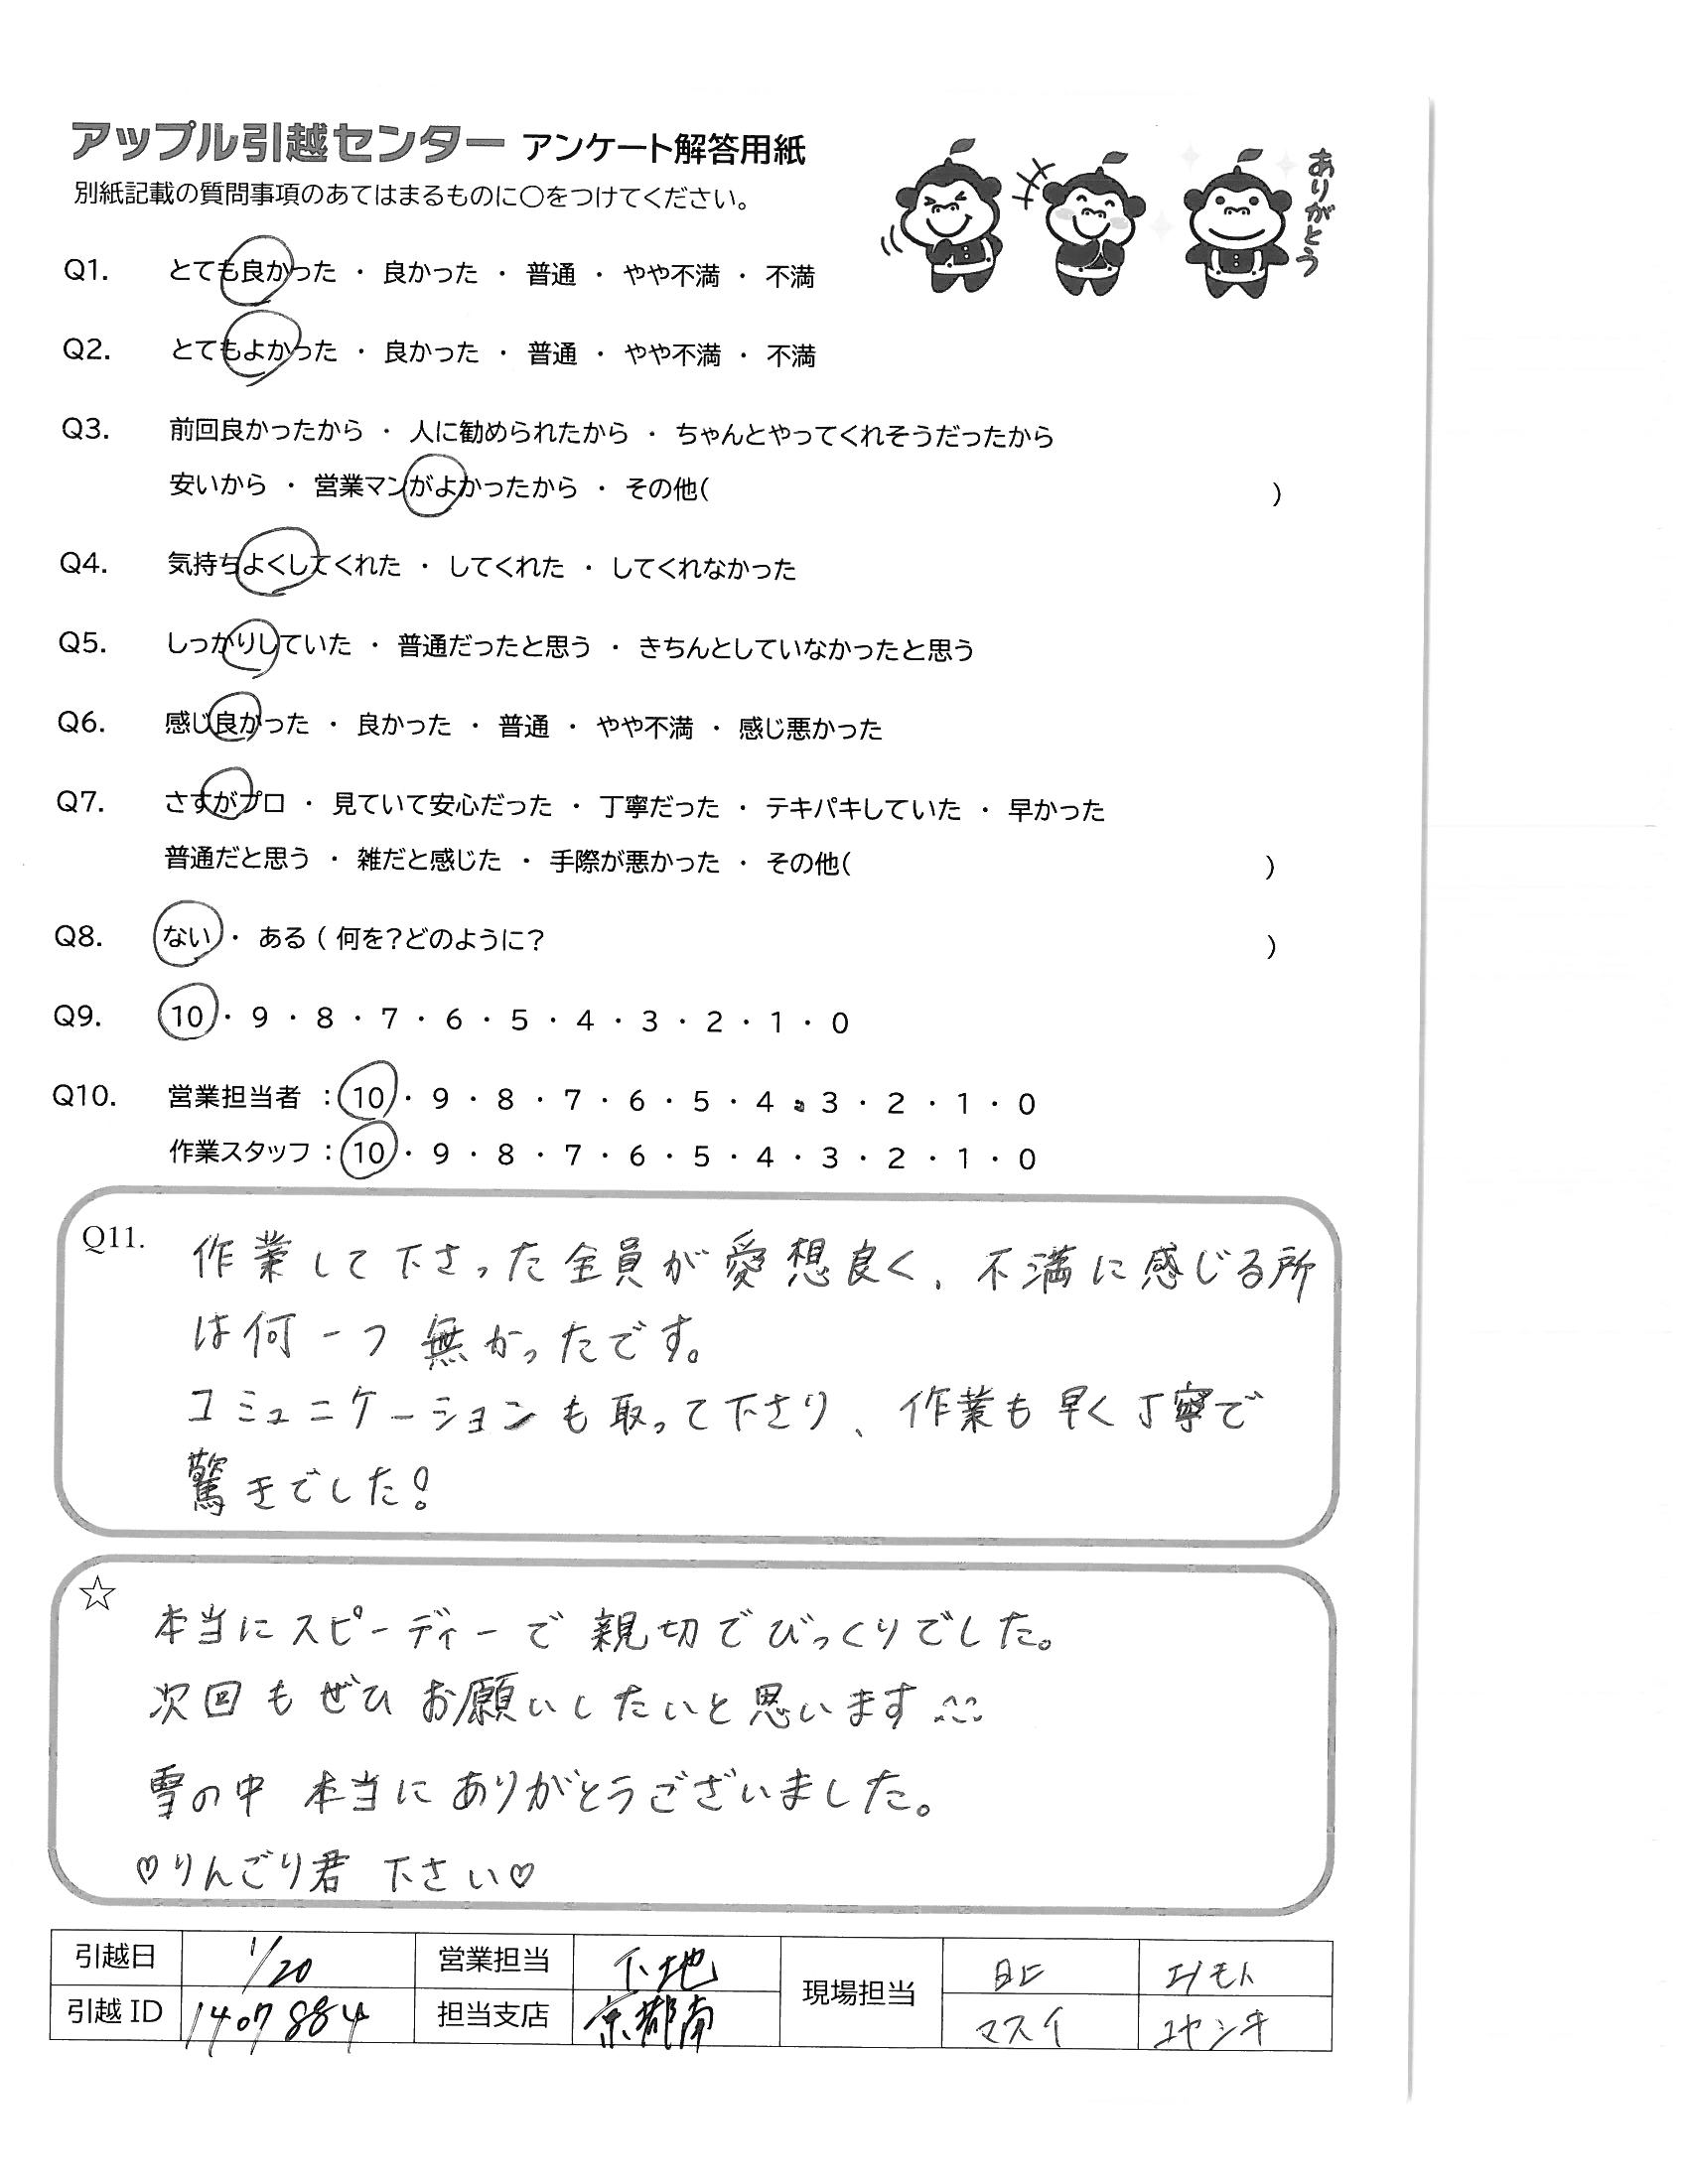 アップル引越センター アンケート解答用紙
ありがとう
別紙記載の質問事項のあてはまるものに〇をつけてください。
Q1. とても良かった ・ 良かった ・ 普通 ・ やや不満 ・ 不満
Q2. とてもよかった ・ 良かった ・ 普通 ・ やや不満 ・ 不満
Q3. 前回良かったから ・ 人に勧められたから ・ ちゃんとやってくれそうだったから
安いから ・ 営業マンがよかったから ・ その他( )
Q4. 気持ちよくしてくれた ・ してくれた ・ してくれなかった
Q5. しっかりしていた ・ 普通だったと思う ・ きちんとしていなかったと思う
Q6. 感じ良かった ・ 良かった ・ 普通 ・ やや不満 ・ 感じ悪かった
Q7. さすがプロ ・ 見ていて安心だった ・ 丁寧だった ・ テキパキしていた ・ 早かった
普通だと思う ・ 雑だと感じた ・ 手際が悪かった ・ その他( )
Q8. ない ・ ある ( 何を?どのように? )
Q9. 10 ・ 9 ・ 8 ・ 7 ・ 6 ・ 5 ・ 4 ・ 3 ・ 2 ・ 1 ・ 0
Q10. 営業担当者 : 10 ・ 9 ・ 8 ・ 7 ・ 6 ・ 5 ・ 4 ・ 3 ・ 2 ・ 1 ・ 0
作業スタッフ : 10 ・ 9 ・ 8 ・ 7 ・ 6 ・ 5 ・ 4 ・ 3 ・ 2 ・ 1 ・ 0
Q11. 作業して下さった全員が愛想良く、不満に感じる所
は何一つ無かったです。
コミュニケーションも取って下さり、作業も早く丁寧で
驚きでした!
☆ 本当にスピーディーで親切でびっくりでした。
次回もぜひお願いしたいと思います^^
雪の中 本当にありがとうございました。
♡りんごり君 下さい♡
引越日 1/20 営業担当 下地 現場担当 エノモト
引越ID 1407884 担当支店 京都南 マスイ コヤシキ